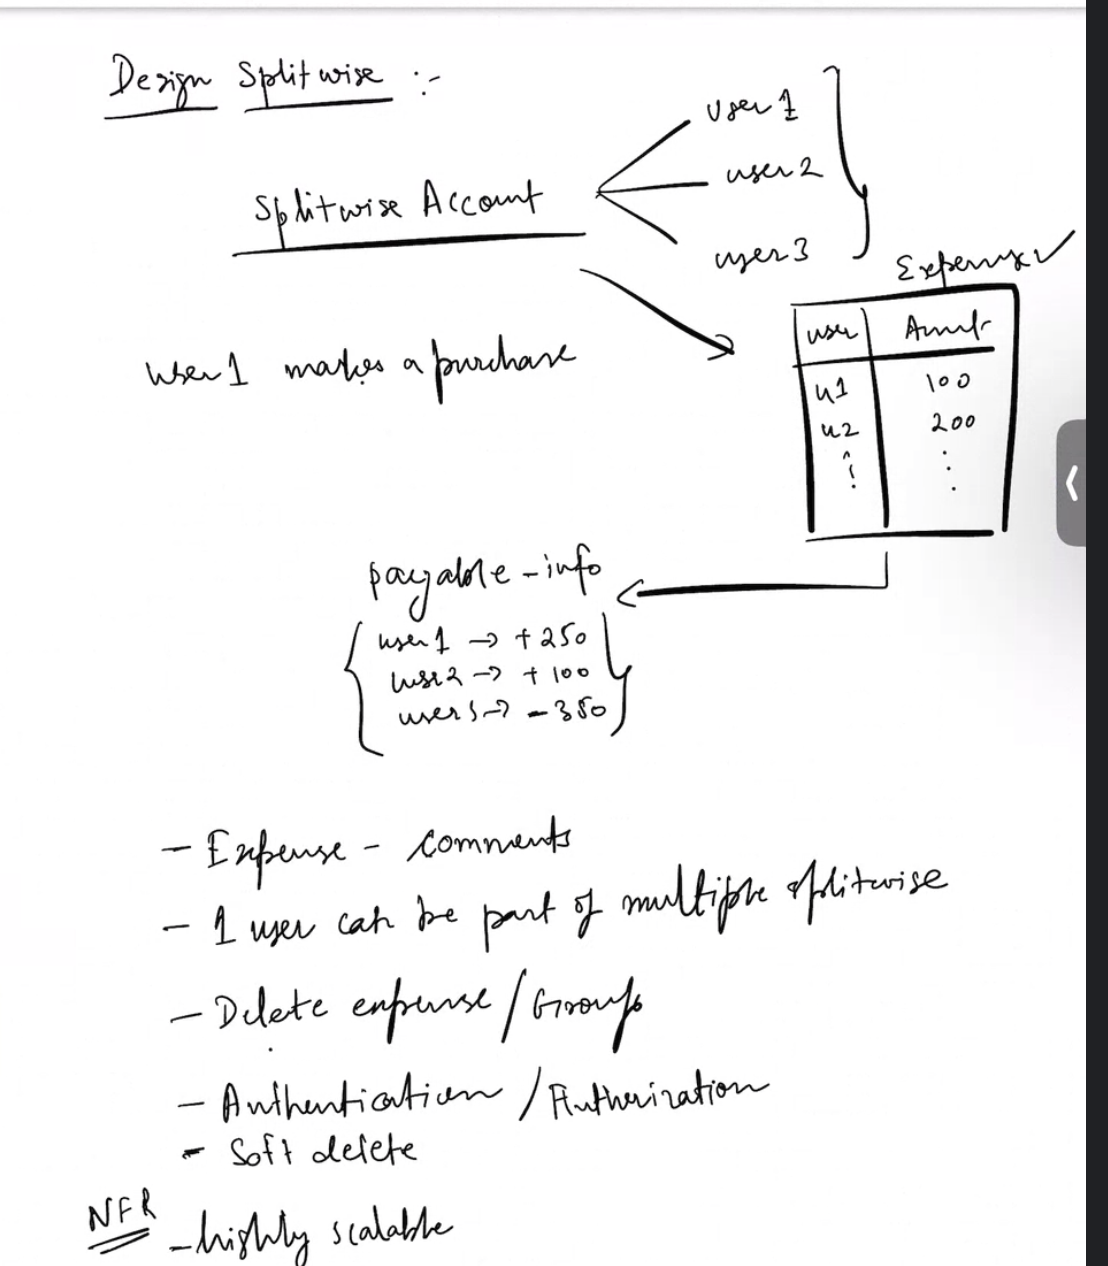 Design Splitwise :-
user 1
user 2
Splitwise Account
user 3
Expense
user1 makes a purchase
user
u1 100
u2 200
payable-info
user 1 → +250
user2 → +100
→ -350
- Expense - comments
- 1 user can be part of multiple splitwise
- Delete expense / Groups
- Authentication / Authorization
- Soft delete
NFR
- highly scalable